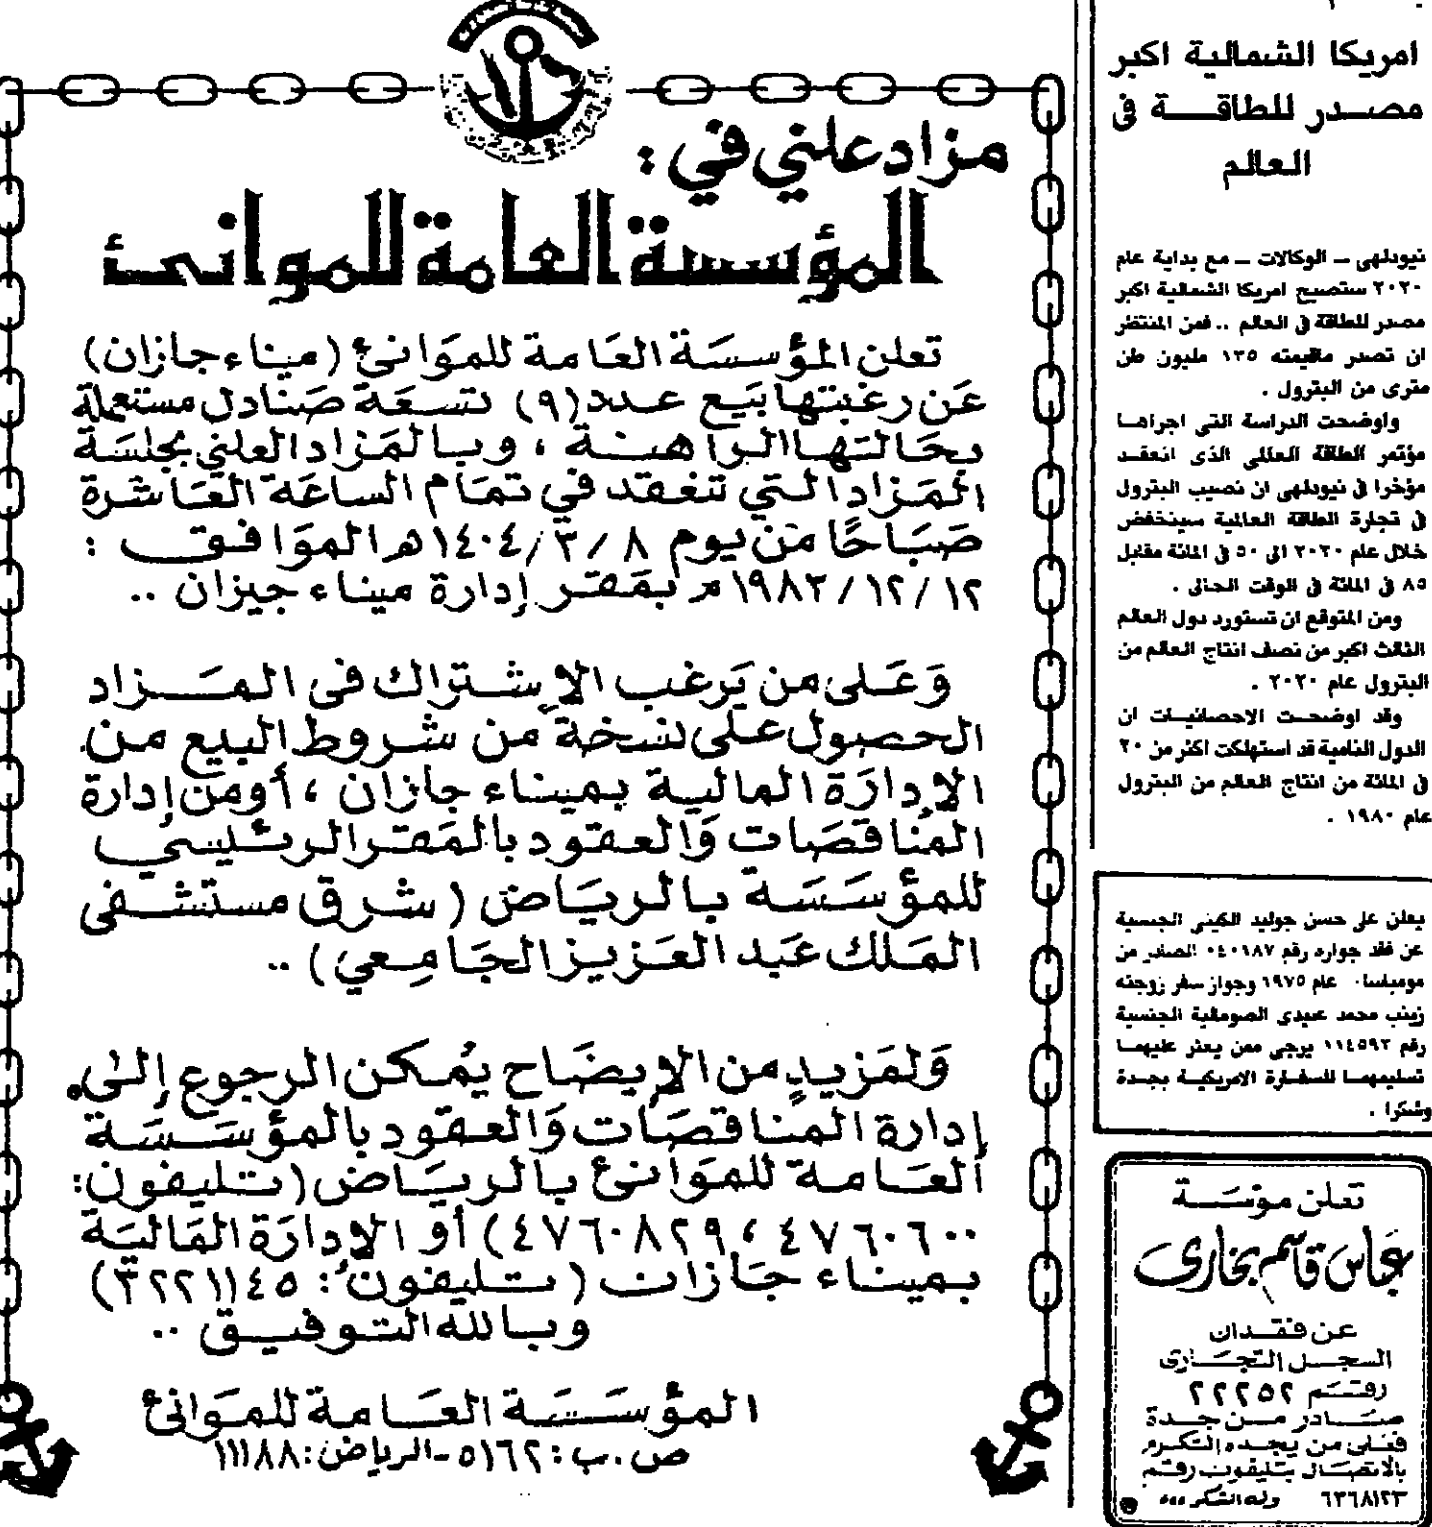 مزاد علني في :
المؤسسة العامة للموانئ
تعلن المؤسسة العامة للموانئ (ميناء جازان)
عن رغبتها ببيع عدد (٩) تسعة صنادل مستعملة
بحالتها الراهنة ، وبالمزاد العلني بجلسة
المزاد التي تنعقد في تمام الساعة العاشرة
صباحًا من يوم ٨ / ٣ / ١٤٠٤هـ الموافق :
١٢ / ١٢ / ١٩٨٣م بمقر إدارة ميناء جيزان ..
وعلى من يرغب الإشتراك في المزاد
الحصول على نسخة من شروط البيع من
الإدارة المالية بميناء جازان ، أو من إدارة
المناقصات والعقود بالمقر الرئيسي
للمؤسسة بالرياض ( شرق مستشفى
الملك عبد العزيز الجامعي ) ..
ولمزيدٍ من الإيضاح يمكن الرجوع إلى
إدارة المناقصات والعقود بالمؤسسة
العامة للموانئ بالرياض (تليفون:
٤٧٦٠٦٠٠ ، ٤٧٦٠٨٢٩) أو الإدارة المالية
بميناء جازان ( تليفون : ٣٢٢١١٤٥)
وبالله التوفيق ..
المؤسسة العامة للموانئ
ص . ب : ٥١٦٢ - الرياض : ١١١٨٨
امريكا الشمالية اكبر
مصدر للطاقة في
العالم
نيودلهى ــ الوكالات ــ مع بداية عام
٢٠٢٠ ستصبح امريكا الشمالية اكبر
مصدر للطاقة في العالم .. فمن المنتظر
ان تصدر ماقيمته ١٣٥ مليون طن
مترى من البترول .
واوضحت الدراسة التى اجراها
مؤتمر الطاقة العالمى الذى انعقد
مؤخرا في نيودلهى ان نصيب البترول
في تجارة الطاقة العالمية سينخفض
خلال عام ٢٠٢٠ الى ٥٠ في المائة مقابل
٨٥ في المائة في الوقت الحالى .
ومن المتوقع ان تستورد دول العالم
الثالث اكبر من نصف انتاج العالم من
البترول عام ٢٠٢٠ .
وقد اوضحت الاحصائيات ان
الدول النامية قد استهلكت اكثر من ٢٠
في المائة من انتاج العالم من البترول
عام ١٩٨٠ .
يعلن على حسن جوليد الكينى الجنسية
عن فقد جوازه رقم ٠٤٠١٨٧ الصادر من
مومباسا عام ١٩٧٥ وجواز سفر زوجته
زينب محمد عبدى الصومالية الجنسية
رقم ١١٤٥٩٢ يرجى ممن يعثر عليهما
تسليمهما للسفارة الامريكية بجدة
وشكرا .
تعلن مؤسسة
عباس قاسم بخارى
عن فقدان
السجل التجارى
رقم ٢٢٢٥٢
صادر من جدة
فعلى من يجده التكرم
بالاتصال بتليفون رقم
٦٣٦٨١٢٣ وله الشكر ٠٠٠